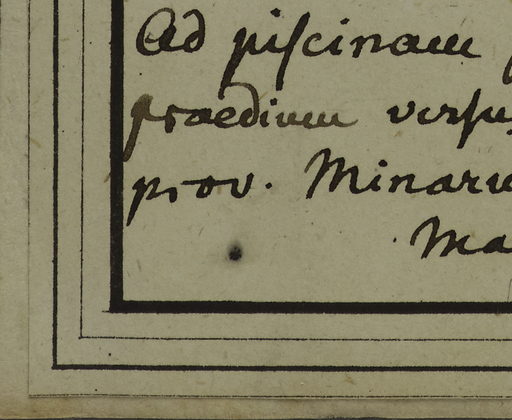 Ad piſcinam
praedium verſu
prov. Minaru
Ma